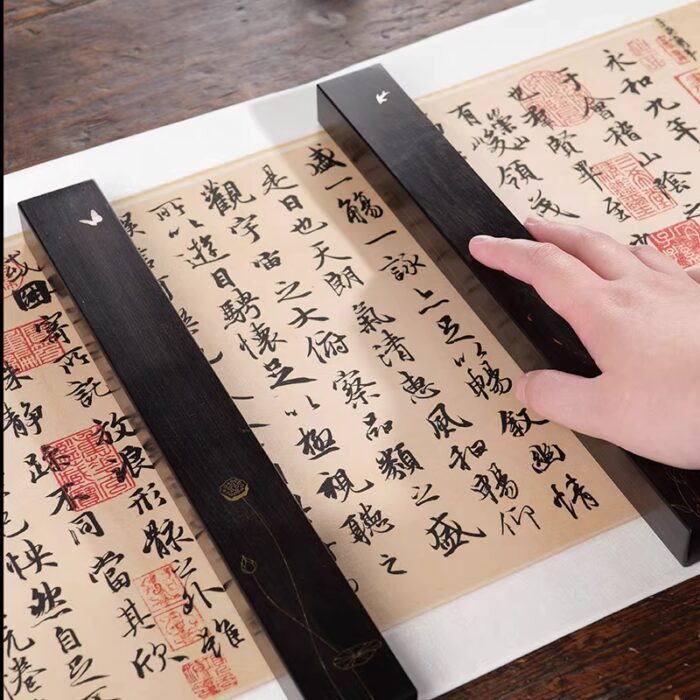 永和九年
于會稽山陰
也羣賢畢至
有崇山峻領茂
盛一觴一詠亦足以暢叙幽情
是日也天朗氣清惠風和暢仰
觀宇宙之大俯察品類之盛
所以遊目騁懷足以極視聽之
或因寄所託放浪形骸之外雖
殊靜躁不同當其欣
己快然自足